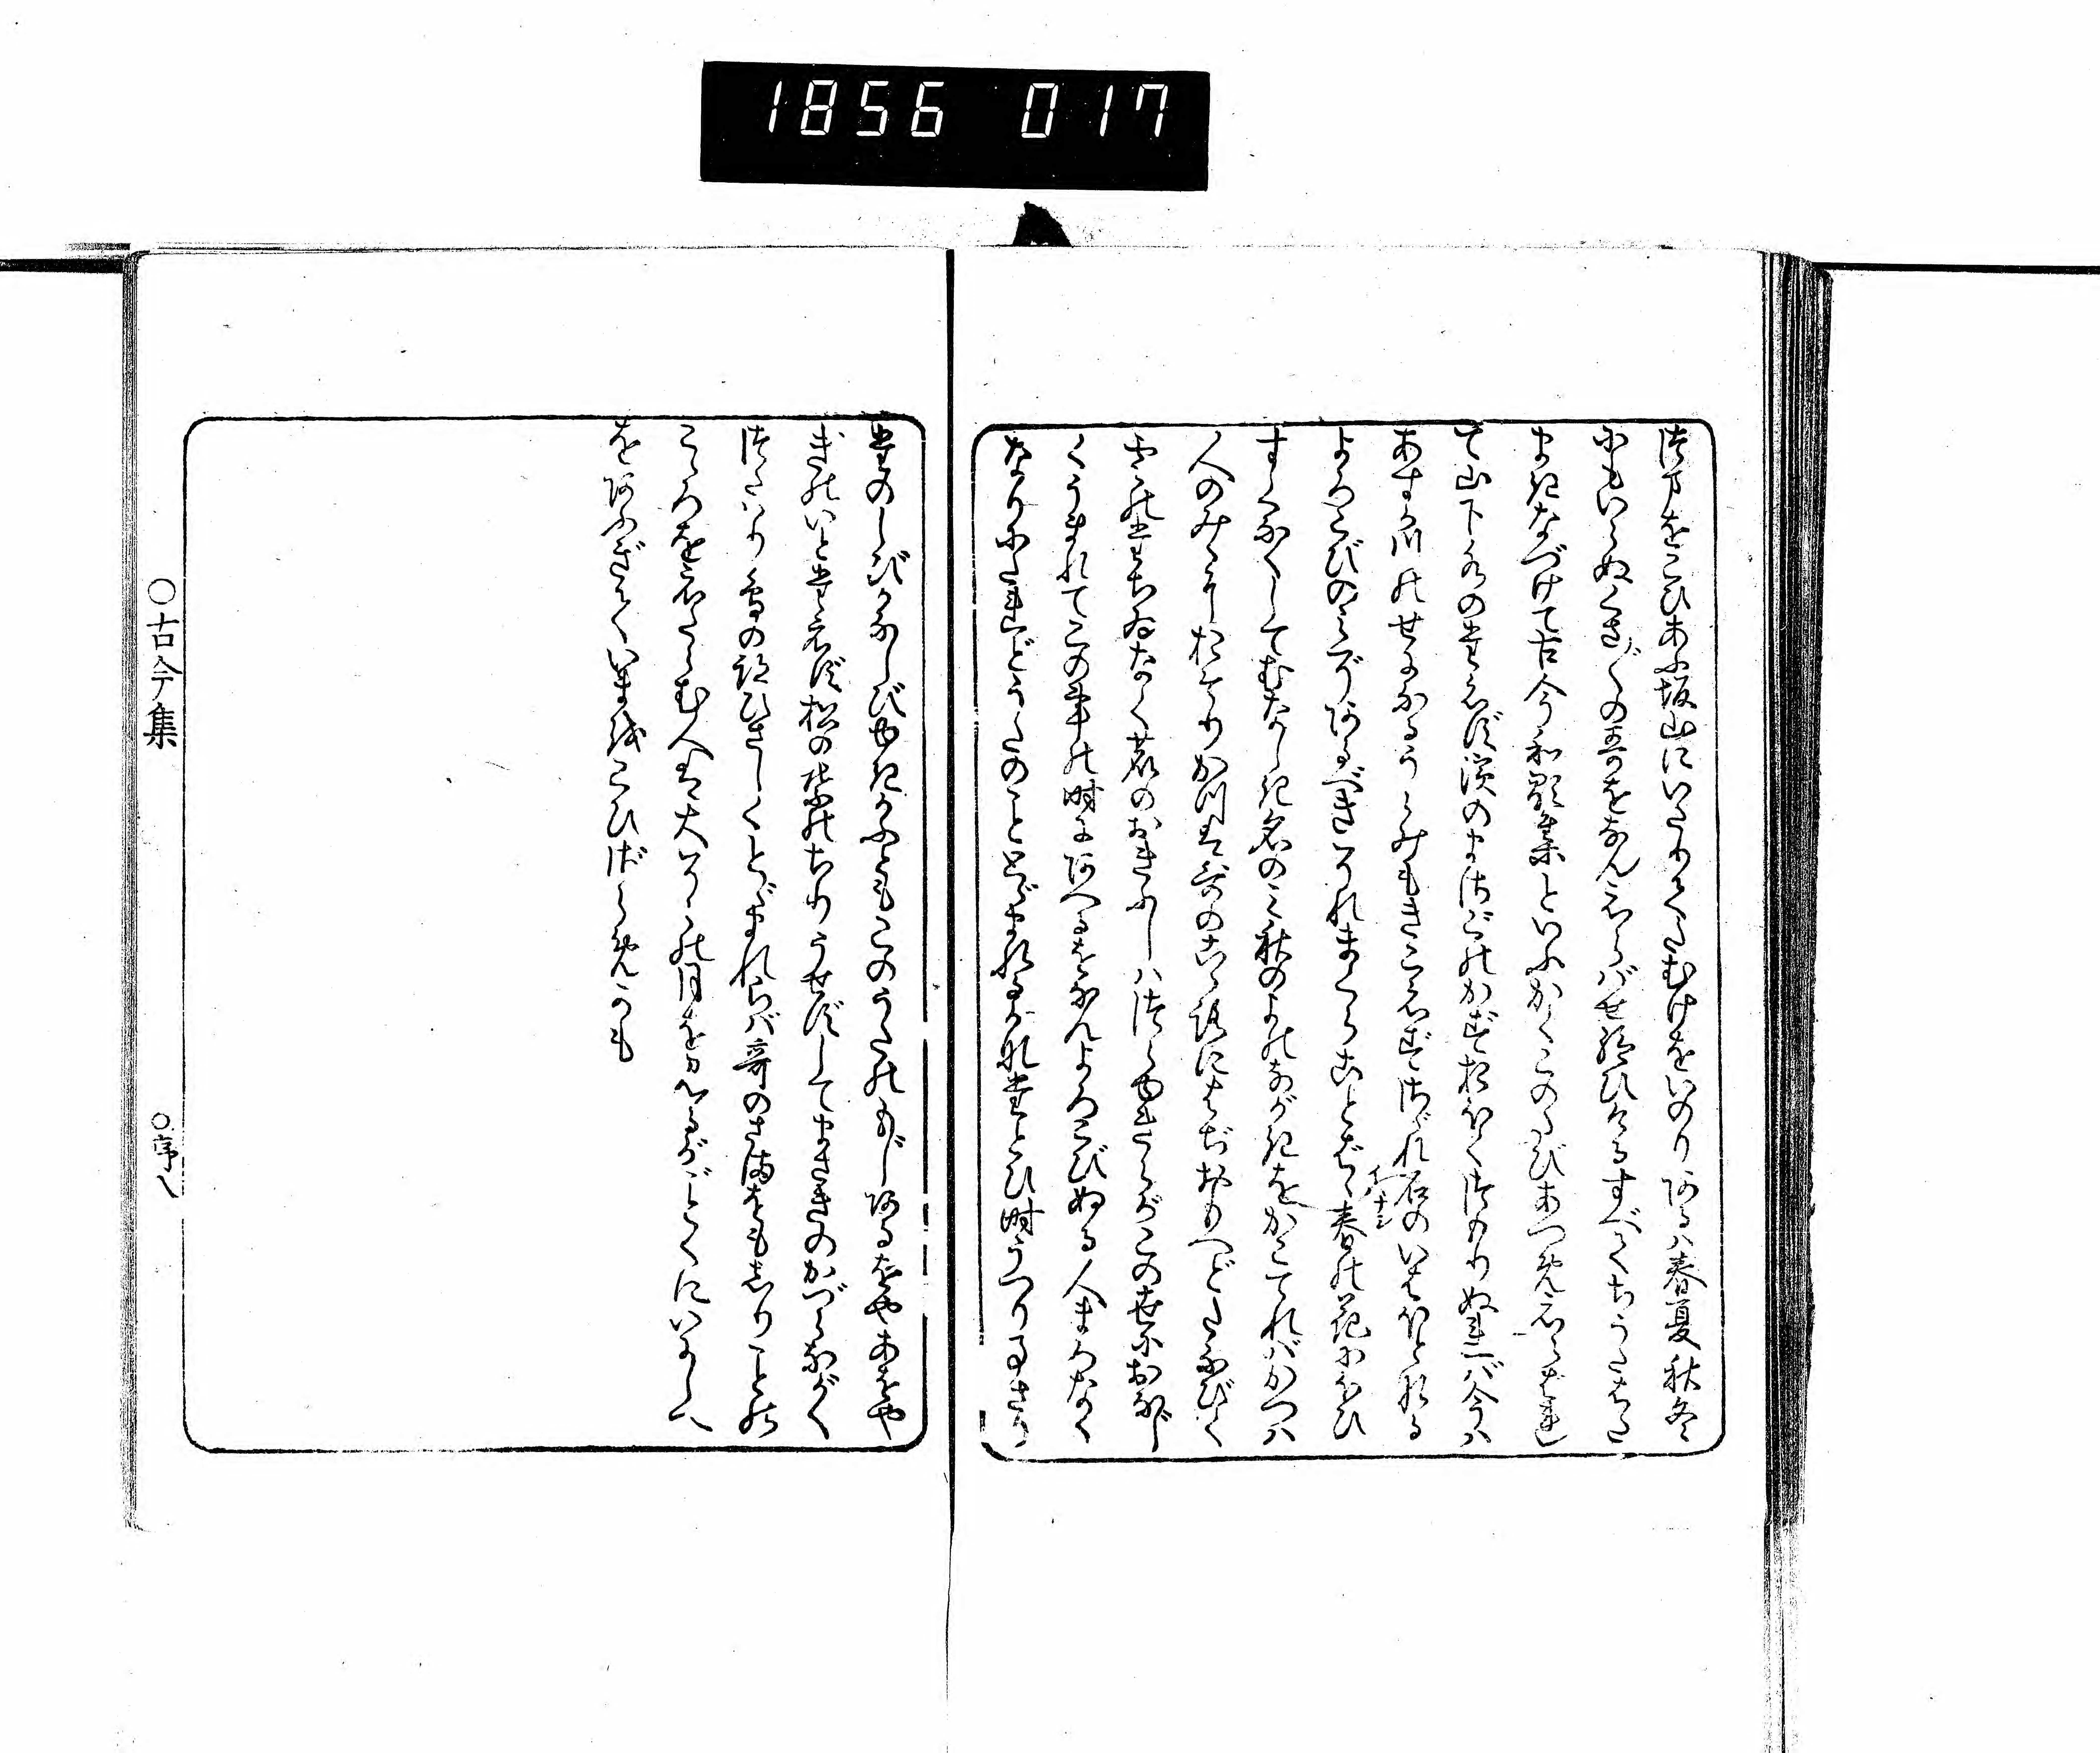 1856 017
つまをこひあふ坂山にいたりてたむけをいのりあるは春夏秋冬
にもいらぬくさ〴〵の哥をなんえらばせ給ひけるすべてちうたはた
まきなづけて古今和歌集といふかくこのたびあつめえらはれ
て山下水のたえず濱のまさごのかずおほくつもりぬれば今ハ
あすか川のせになるうらみもきこえずさゞれ石のいはほとなる
よろこびのみぞあるべきそれまくらことば春の花にほひ
すくなくしてむなしき名のミ秋のよのながきをかこてれバかつハ
人のみゝにおそりかつは哥のこゝろにはぢおもへどたなびく
雲のたちゐなく鹿のおきふしハつらゆきらがこの世におなじ
くうまれてこの事の時にあへるをなんよろこびぬる人まろなく
なりにたれどうたのことゞまれるかなたとひ時うつりことさり
たのしびかなしびゆきかふともこのうたのもじあるをやあをや
ぎのいとたえず松の葉のちりうせずしてまさきのかづらながく
つたハり鳥の跡ひさしくとゞまれらバ哥のさまをもしりことの
こゝろをえたらむ人は大ぞらの月を見るがごとくにいにしへ
をあふぎていまをこひざらめかも
○古今集
○序八